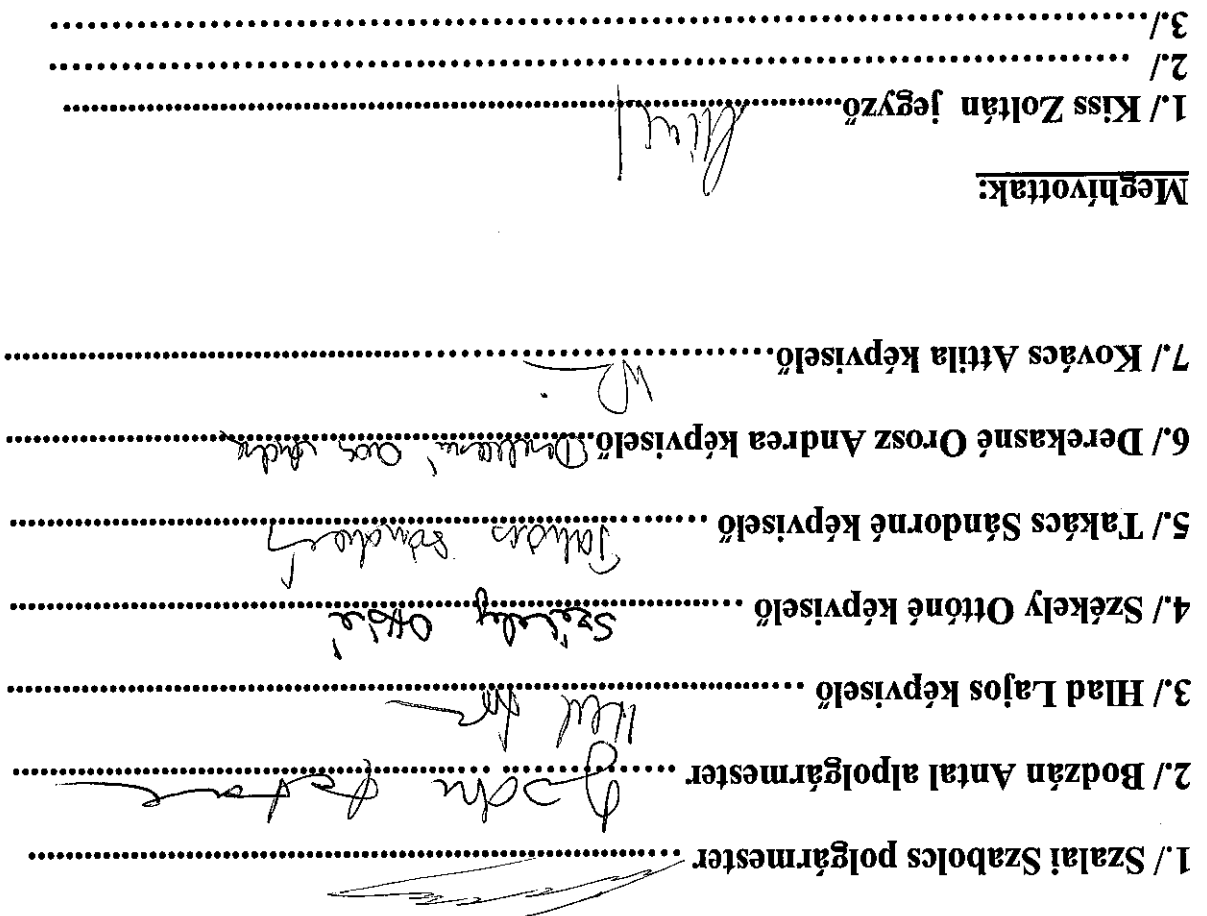 1./ Szalai Szabolcs polgármester ..........
2./ Bodzán Antal alpolgármester ..........
3./ Hlad Lajos képviselő ..........
4./ Székely Ottóné képviselő .......... Székely Ottóné
5./ Takács Sándorné képviselő .......... Takács Sándorné
6./ Derekasné Orosz Andrea képviselő .......... Derekasné Orosz Andrea
7./ Kovács Attila képviselő ..........
Meghívottak:
1./ Kiss Zoltán jegyző ..........
2./ ..........
3./ ..........